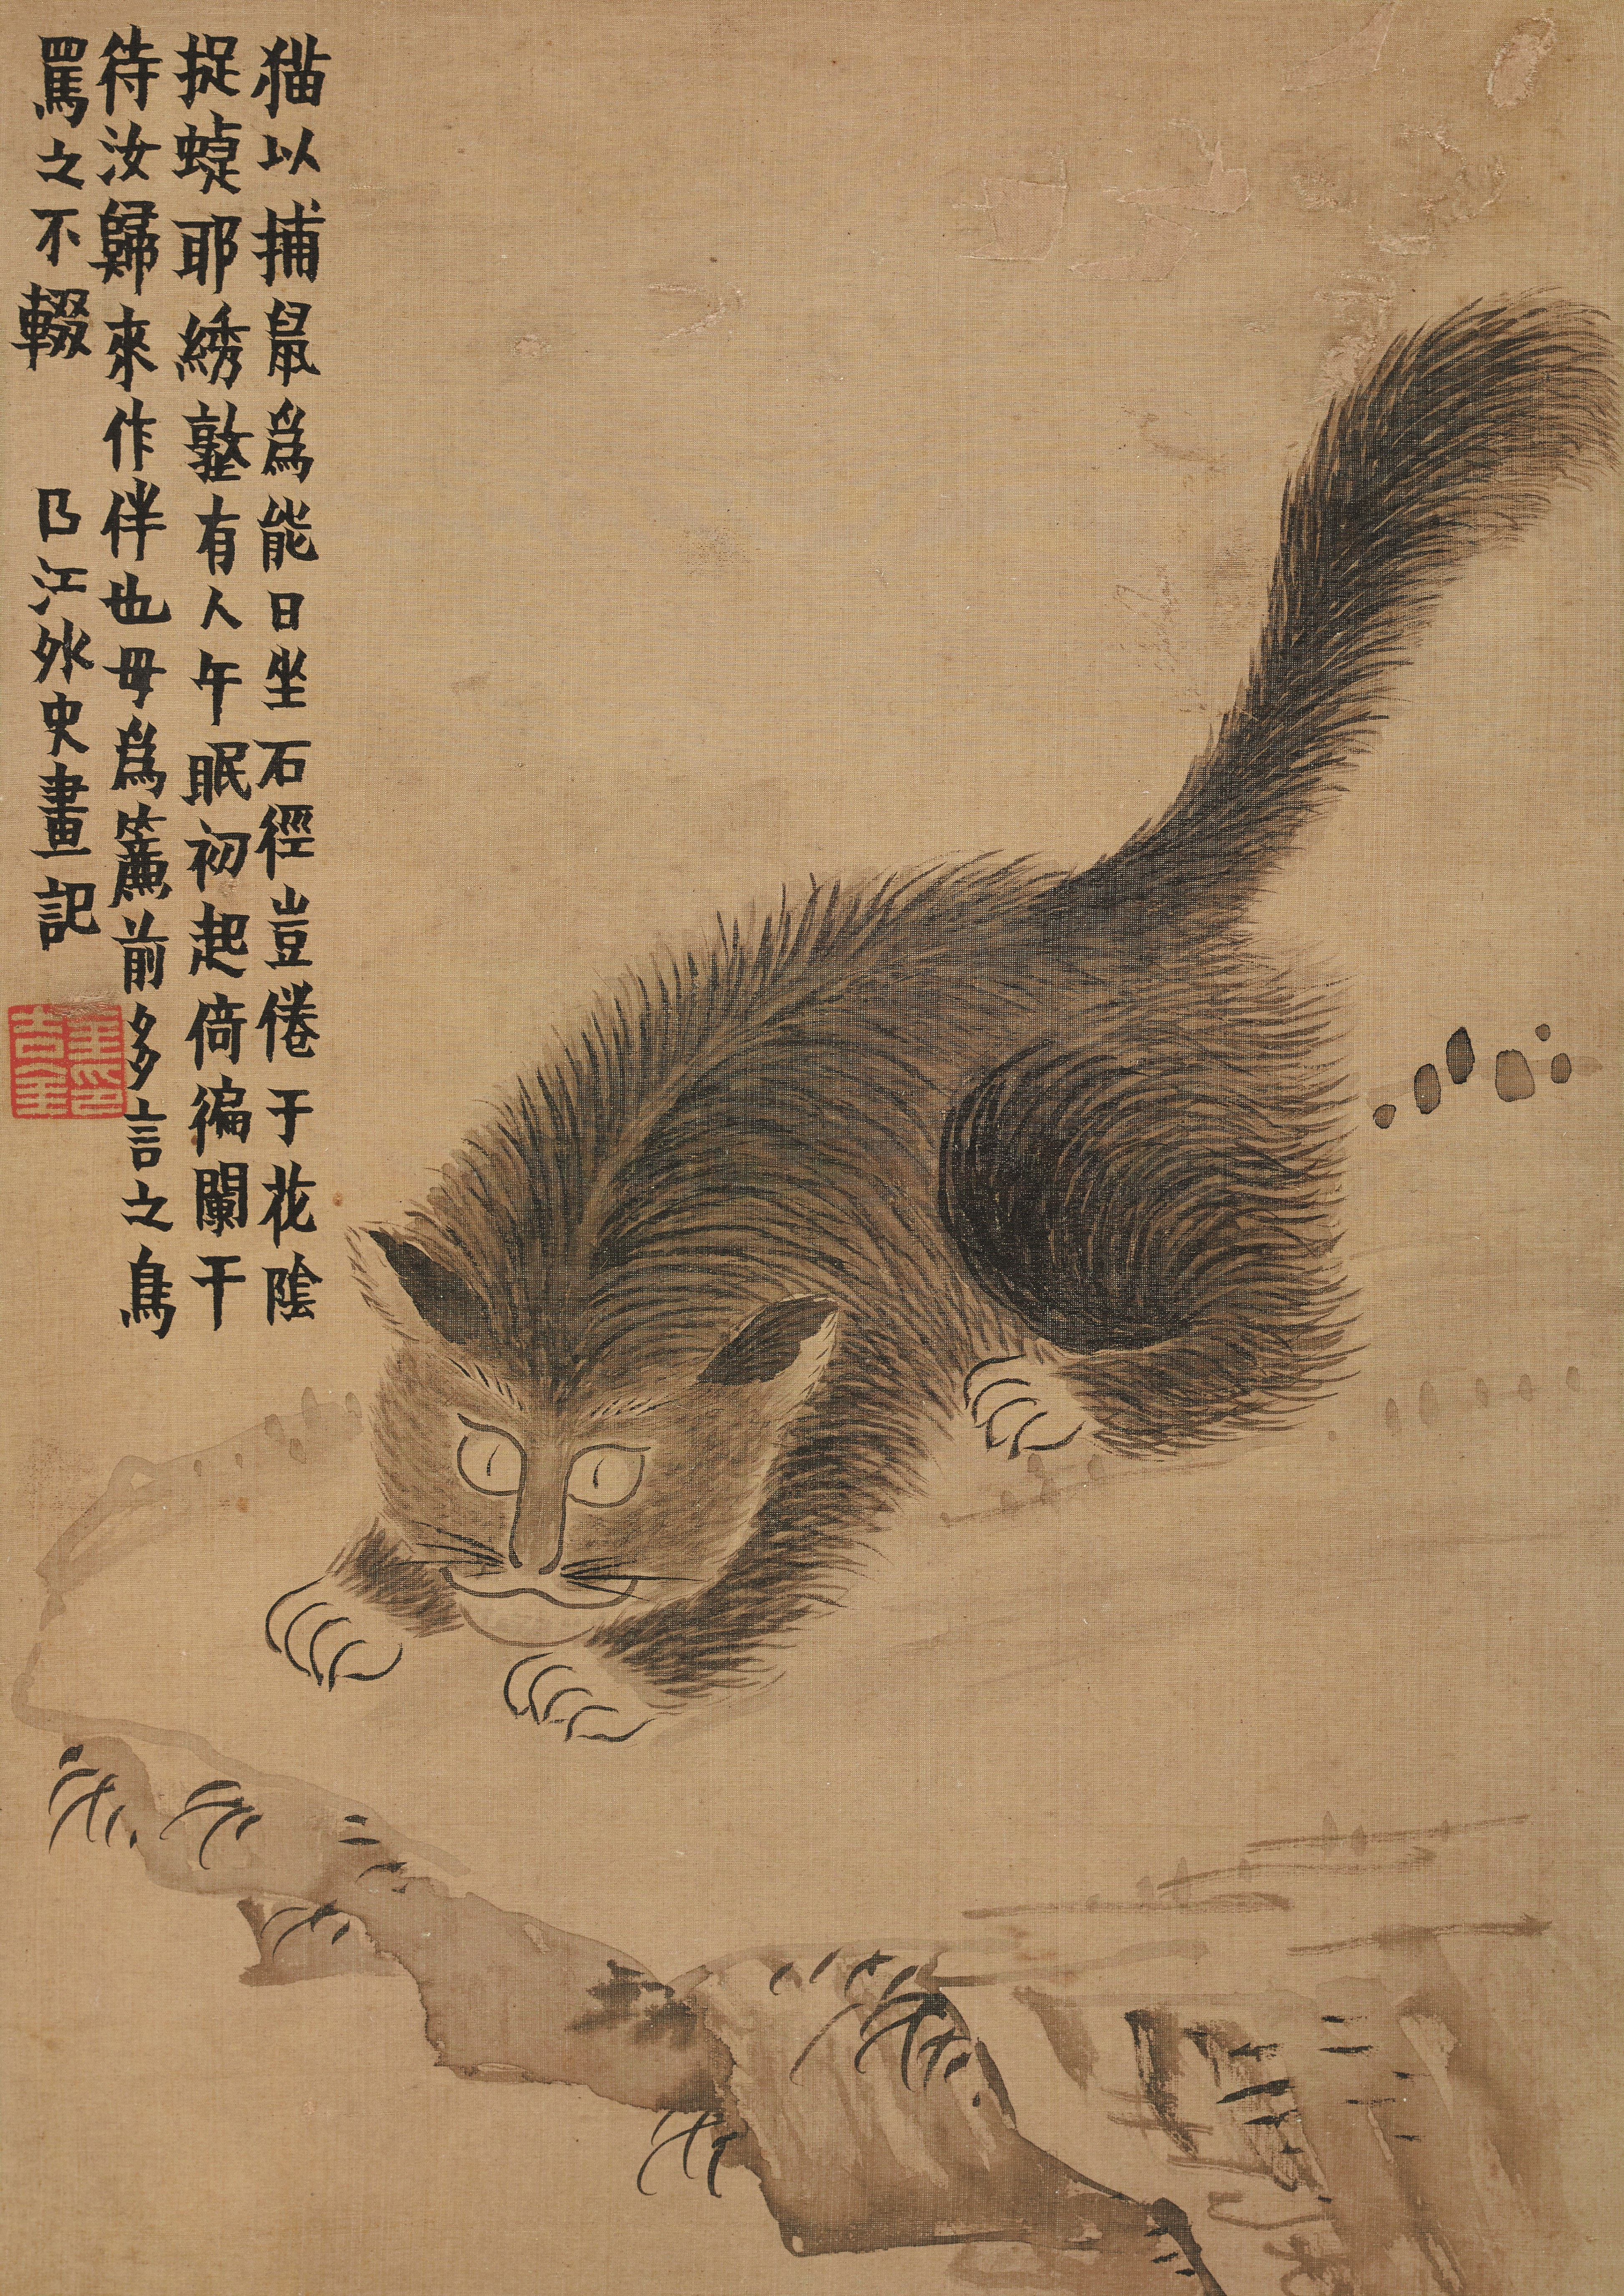 猫以捕鼠為能日坐石徑豈倦于花陰
捉蜨耶綉墪有人午眠初起倚徧闌干
待汝歸來作伴也毋為簾前多言之鳥
罵之不輟　㠯江外史畫記